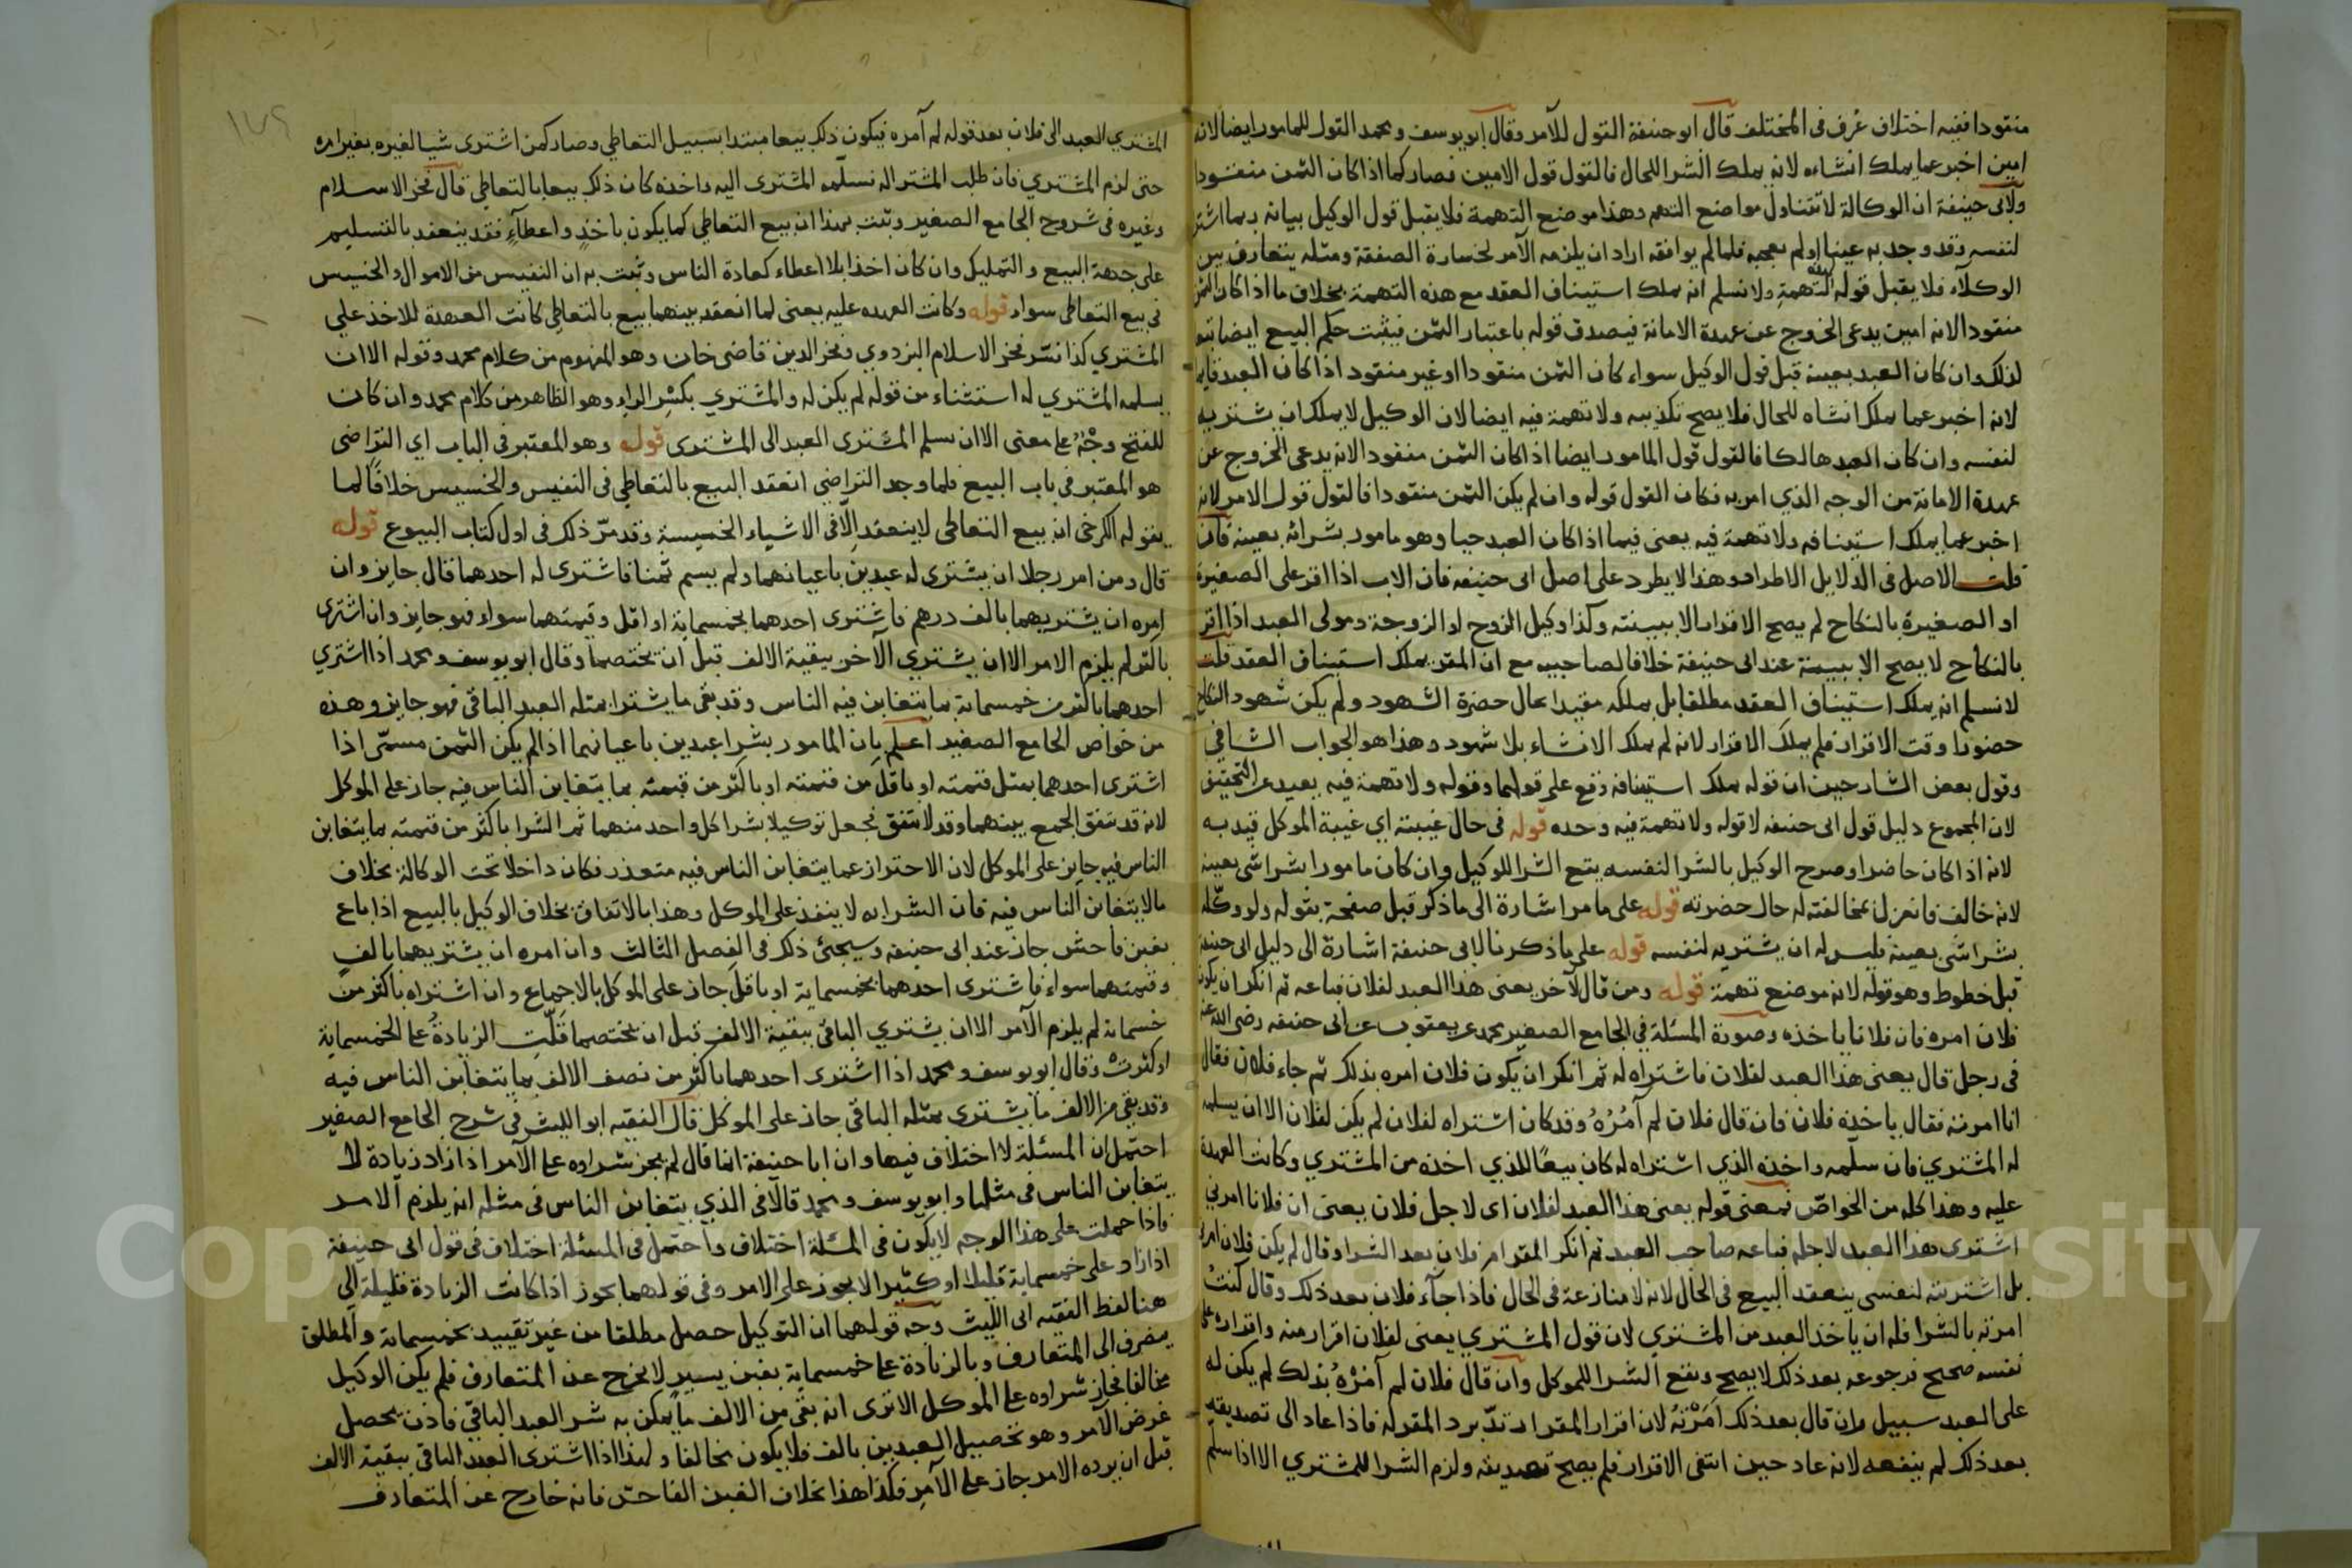 منقودا ففيه اختلاف عُرف في المختلف قال ابو حنيفة القول للآمر وقال ابو يوسف ومحمد القول للمامور ايضا لانه
امين اخبر عما يملك انشاءه لانه يملك الشرا للحال فالقول قول الامين فصار كما اذا كان الثمن منقودا
ولابي حنيفة ان الوكالة لا تتناول مواضع التهم وهذا موضع التهمة فلا يقبل قول الوكيل بيانه ربما اشتر
لنفسه وقد وجد به عيبا او لم يعجبه فلما لم يوافقه اراد ان يلزمه الآمر لخسارة الصفقة ومثله يتعارف بين
الوكلآء فلا يقبل قوله للتهمة ولا نسلم انه يملك استيناف العقد مع هذه التهمة بخلاف ما اذا كان الثمن
منقودا لانه امين يدعى الخروج عن عهدة الامانة فيصدق قوله باعتبار الثمن فيثبت حكم البيع ايضا تبعا
لذلك وان كان العبد بعينه قبل قول الوكيل سواء كان الثمن منقودا او غير منقود اذا كان العبد قايما
لانه اخبر عما يملك انشاه للحال فلا يصح تكذيبه ولا تهمة فيه ايضا لان الوكيل لا يملك ان يشتريه
لنفسه وان كان العبد هالكا فالقول قول المامور ايضا اذا كان الثمن منقودا لانه يدعى الخروج عن
عهدة الامانة من الوجه الذي امر به فكان القول قوله وان لم يكن الثمن منقودا فالقول قول الامر لانه
اخبر عما يملك استينافه ولا تهمة فيه يعنى فيما اذا كان العبد حيا وهو مامور بشرائه بعينه فان
قلت الاصل في الدلايل الاطراد وهذا لا يطرد على اصل ابى حنيفه فان الاب اذا اقر على الصغيرة
او الصغيرة بالنكاح لم يصح الاقرار الا ببينته وكذا وكيل الزوج او الزوجة ومولى العبد اذا اقر
بالنكاح لا يصح الا ببينة عند ابى حنيفة خلافا لصاحبيه مع ان المقر يملك استيناف العقد قلت
لا نسلم انه يملك استيناف العقد مطلقا بل يملكه مقيدا بحال حضرة الشهود ولم يكن شهود النكاح
حضورا وقت الاقرار فلم يملك الاقرار لانه لم يملك الانشاء بلا شهود وهذا هو الجواب الشافي
وقول بعض الشارحين ان قوله يملك استينافه وقع على قولهما وقوله ولا تهمة فيه بعيد عن التحقيق
لان المجموع دليل قول ابى حنيفه لا قوله ولا تهمة فيه وحده قوله في حال غيبته اي غيبة الموكل قيد به
لانه اذا كان حاضرا وصرح الوكيل بالشرا لنفسه يقع الشرا للوكيل وان كان مامورا بشرا شي بعينه
لانه خالف فانعزل بمخالفته له حال حضرته قوله على ما مر اشارة الى ما ذكر قبل صفحة بقوله ولو وكّله
بشرا شى بعينه فليس له ان يشتريه لنفسه قوله على ما ذكرنا لابى حنيفة اشارة الى دليل ابى حنيفة
قبل خطوط وهو قوله لانه موضع تهمة قوله ومن قال لآخر بعنى هذا العبد لفلان فباعه ثم انكر ان يكون
فلان امره فان فلانا ياخذه وصورة المسئلة في الجامع الصغير محمد عن يعقوب عن ابى حنيفه رضى الله عنه
في رجل قال بعنى هذا العبد لفلان فاشتراه له ثم انكر ان يكون فلان امره بذلك ثم جاء فلان فقال
انا امرته فقال ياخذه فلان فان قال فلان لم آمُرْهُ وقد كان اشتراه لفلان لم يكن لفلان الا ان يسلمه
له المشتري فان سلّمه واخذه الذي اشتراه له كان بيعًا للذي اخذه من المشتري وكانت العهدة
عليه وهذا كله من الخواصّ فمعنى قوله بعنى هذا العبد لفلان اى لاجل فلان يعنى ان فلانا امرني
اشترى هذا العبد لاجله فباعه صاحب العبد ثم انكر المقر امر فلان بعد الشرا وقال لم يكن فلان امرنى
بل اشتريته لنفسى ينعقد البيع في الحال لانه لا منازعة في الحال فاذا جآء فلان بعد ذلك وقال كنتُ
امرته بالشرا فله ان ياخذ العبد من المشترى لان قول المشتري بعنى لفلان اقرار منه واقراره على
نفسه صحيح فرجوعه بعد ذلك لا يصح ويقع الشرا للموكل وان قال فلان لم آمُرْهُ بذلك لم يكن له
على العبد سبيل وان قال بعد ذلك اَمَرْتهُ لان اقرار المقر ارتدّ برد المقر له فاذا عاد الى تصديقه
بعد ذلك لم ينفعه لانه عاد حين انتفى الاقرار فلم يصح تصديقه ولزم الشرا للمشتري الا اذا سلم
١٧٩
المشتري العبد الى فلان بعد قوله لم آمره فيكون ذلك بيعا مبتدا بسبيل التعاطي وصار كمن اشترى شيا لغيره بغير امره
حتى لزم المشتري فان طلب المشترا له فسلّمه المشترى اليه واخذه كان ذلك بيعا بالتعاطى قال فخر الاسلام
وغيره في شروح الجامع الصغير ويثبت بهذا ان بيع التعاطي كما يكون باخذٍ واعطآءٍ فقد ينعقد بالتسليم
على جهة البيع والتمليك وان كان اخذا بلا اعطاء كعادة الناس وثبت به ان النفيس من الاموال والخسيس
في بيع التعاطى سواء قوله وكانت العهده عليه يعنى لما انعقد بينهما بيع بالتعاطى كانت العهدة للاخذ على
المشتري كذا فسّر فخر الاسلام البزدوي وفخر الدين قاضى خان وهو المفهوم من كلام محمد وقوله الا ان
يسلمه المشتري له استثناء من قوله لم يكن له والمشتري بكسْرِ الراء وهو الظاهر من كلام محمد وان كان
للفتح وجْهٌ على معنى الا ان يسلم المشترى العبد الى المشترى قوله وهو المعتبر في الباب اي التراضى
هو المعتبر في باب البيع فلما وجد التراضى انعقد البيع بالتعاطي في النفيس والخسيس خلافًا لما
يقوله الكرخى ان بيع التعاطى لا ينعقد الّا في الاشياء الخسيسة وقد مرّ ذلك في اول كتاب البيوع قوله
قال ومن امر رجلا ان يشترى له عبدين باعيانهما ولم يسم ثمنا فاشترى له احدهما قال جايز وان
امره ان يشتريهما بالف درهم فاشترى احدهما بخمسماية او اقل وقيمتهما سواء فهو جايز وان اشترى
باكثر لم يلزم الامر الا ان يشتري الآخر ببقية الالف قبل ان يختصما وقال ابو يوسف ومحمد اذا اشتري
احدهما باكثر من خمسماية بما يتغابن فيه الناس وقد بقى ما يشترا بمثله العبد الباقى فهو جايز وهذه
من خواص الجامع الصغير اعلم بان المامور بشرا عبدين باعيانهما اذا لم يكن الثمن مسمّى اذا
اشترى احدهما بمثل قيمته او باقل من قيمته او باكثر من قيمته بما يتغابن الناس فيه جاز على الموكل
لانه قد يتفق الجمع بينهما وقد لا يتفق فجعل توكيلا بشرا كل واحد منهما ثم الشرا باكثر من قيمته بما يتغابن
الناس فيه جايز على الموكل لان الاحتراز عما يتغابن الناس فيه متعذر فكان داخلا تحت الوكالة بخلاف
مالا يتغابن الناس فيه فان الشرا به لا ينفذ على الموكل وهذا بالاتفاق بخلاف الوكيل بالبيع اذا باع
بغبن فاحش جاز عند ابى حنيفه وسيجئ ذلك في الفصل الثالث وان امره ان يشتريهما بالفٍ
وقيمتهما سواء فاشترى احدهما بخمسماية او باقل جاز على الموكل بالاجماع وان اشتراه باكثر من
خسماية لم يلزم الآمر الا ان يشتري الباقى ببقية الالف قبل ان يختصما قلّتِ الزيادةُ على الخمسماية
او كثرتْ وقال ابو يوسف ومحمد اذا اشترى احدهما باكثر من نصف الالف بما يتغابن الناس فيه
وقد بقى من الالف ما يشترى بمثله الباقى جاز على الموكل قال الفقيه ابو الليث في شرح الجامع الصغير
احتمل ان المسئلة لا اختلاف فيها وان ابا حنيفة انما قال لم يجز شراوه على الآمر اذا زاد زيادة لا
يتغابن الناس في مثلها وابو يوسف ومحمد قالا في الذي يتغابن الناس في مثله انه يلزم الامر
فاذا حملت على هذا الوجه لا يكون في المسئلة اختلاف واحتمل في المسئلة اختلاف في قول ابى حنيفة
اذا زاد على خمسماية قليلا او كثيرا لا يجوز على الامر وفى قولهما يجوز اذا كانت الزيادة قليلة الى
هنا لفظ الفقيه ابى الليث وجه قولهما ان التوكيل حصل مطلقا من غير تقييد بخمسماية والمطلق
يصرف الى المتعارف وبالزيادة على خمسماية بغبن يسير لا يخرج عن المتعارف فلم يكن الوكيل
مخالفا فجاز شراوه على الموكل الا ترى انه بقى من الالف ما يمكن به شرا العبد الباقي فاذن يحصل
غرض الآمر وهو تحصيل العبدين بالف فلا يكون مخالفا ولهذا اذا اشترى العبد الباقى ببقية الالف
قبل ان يرده الامر جاز على الآمر فكذا هذا بخلاف الغبن الفاحش فانه خارج عن المتعارف